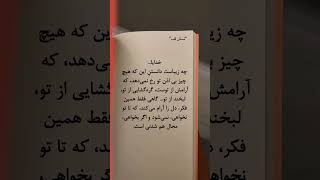 خدایا،
چه زیباست دانستن این که هیچ
چیز بی اذن تو رخ نمی‌دهد، که
آرامش از توست، گره‌گشایی از تو،
لبخند از تو. گاهی فقط همین
فکر، دل را آرام می‌کند، که تا تو
نخواهی، نمی‌شود و اگر بخواهی،
محال هم شدنی است.